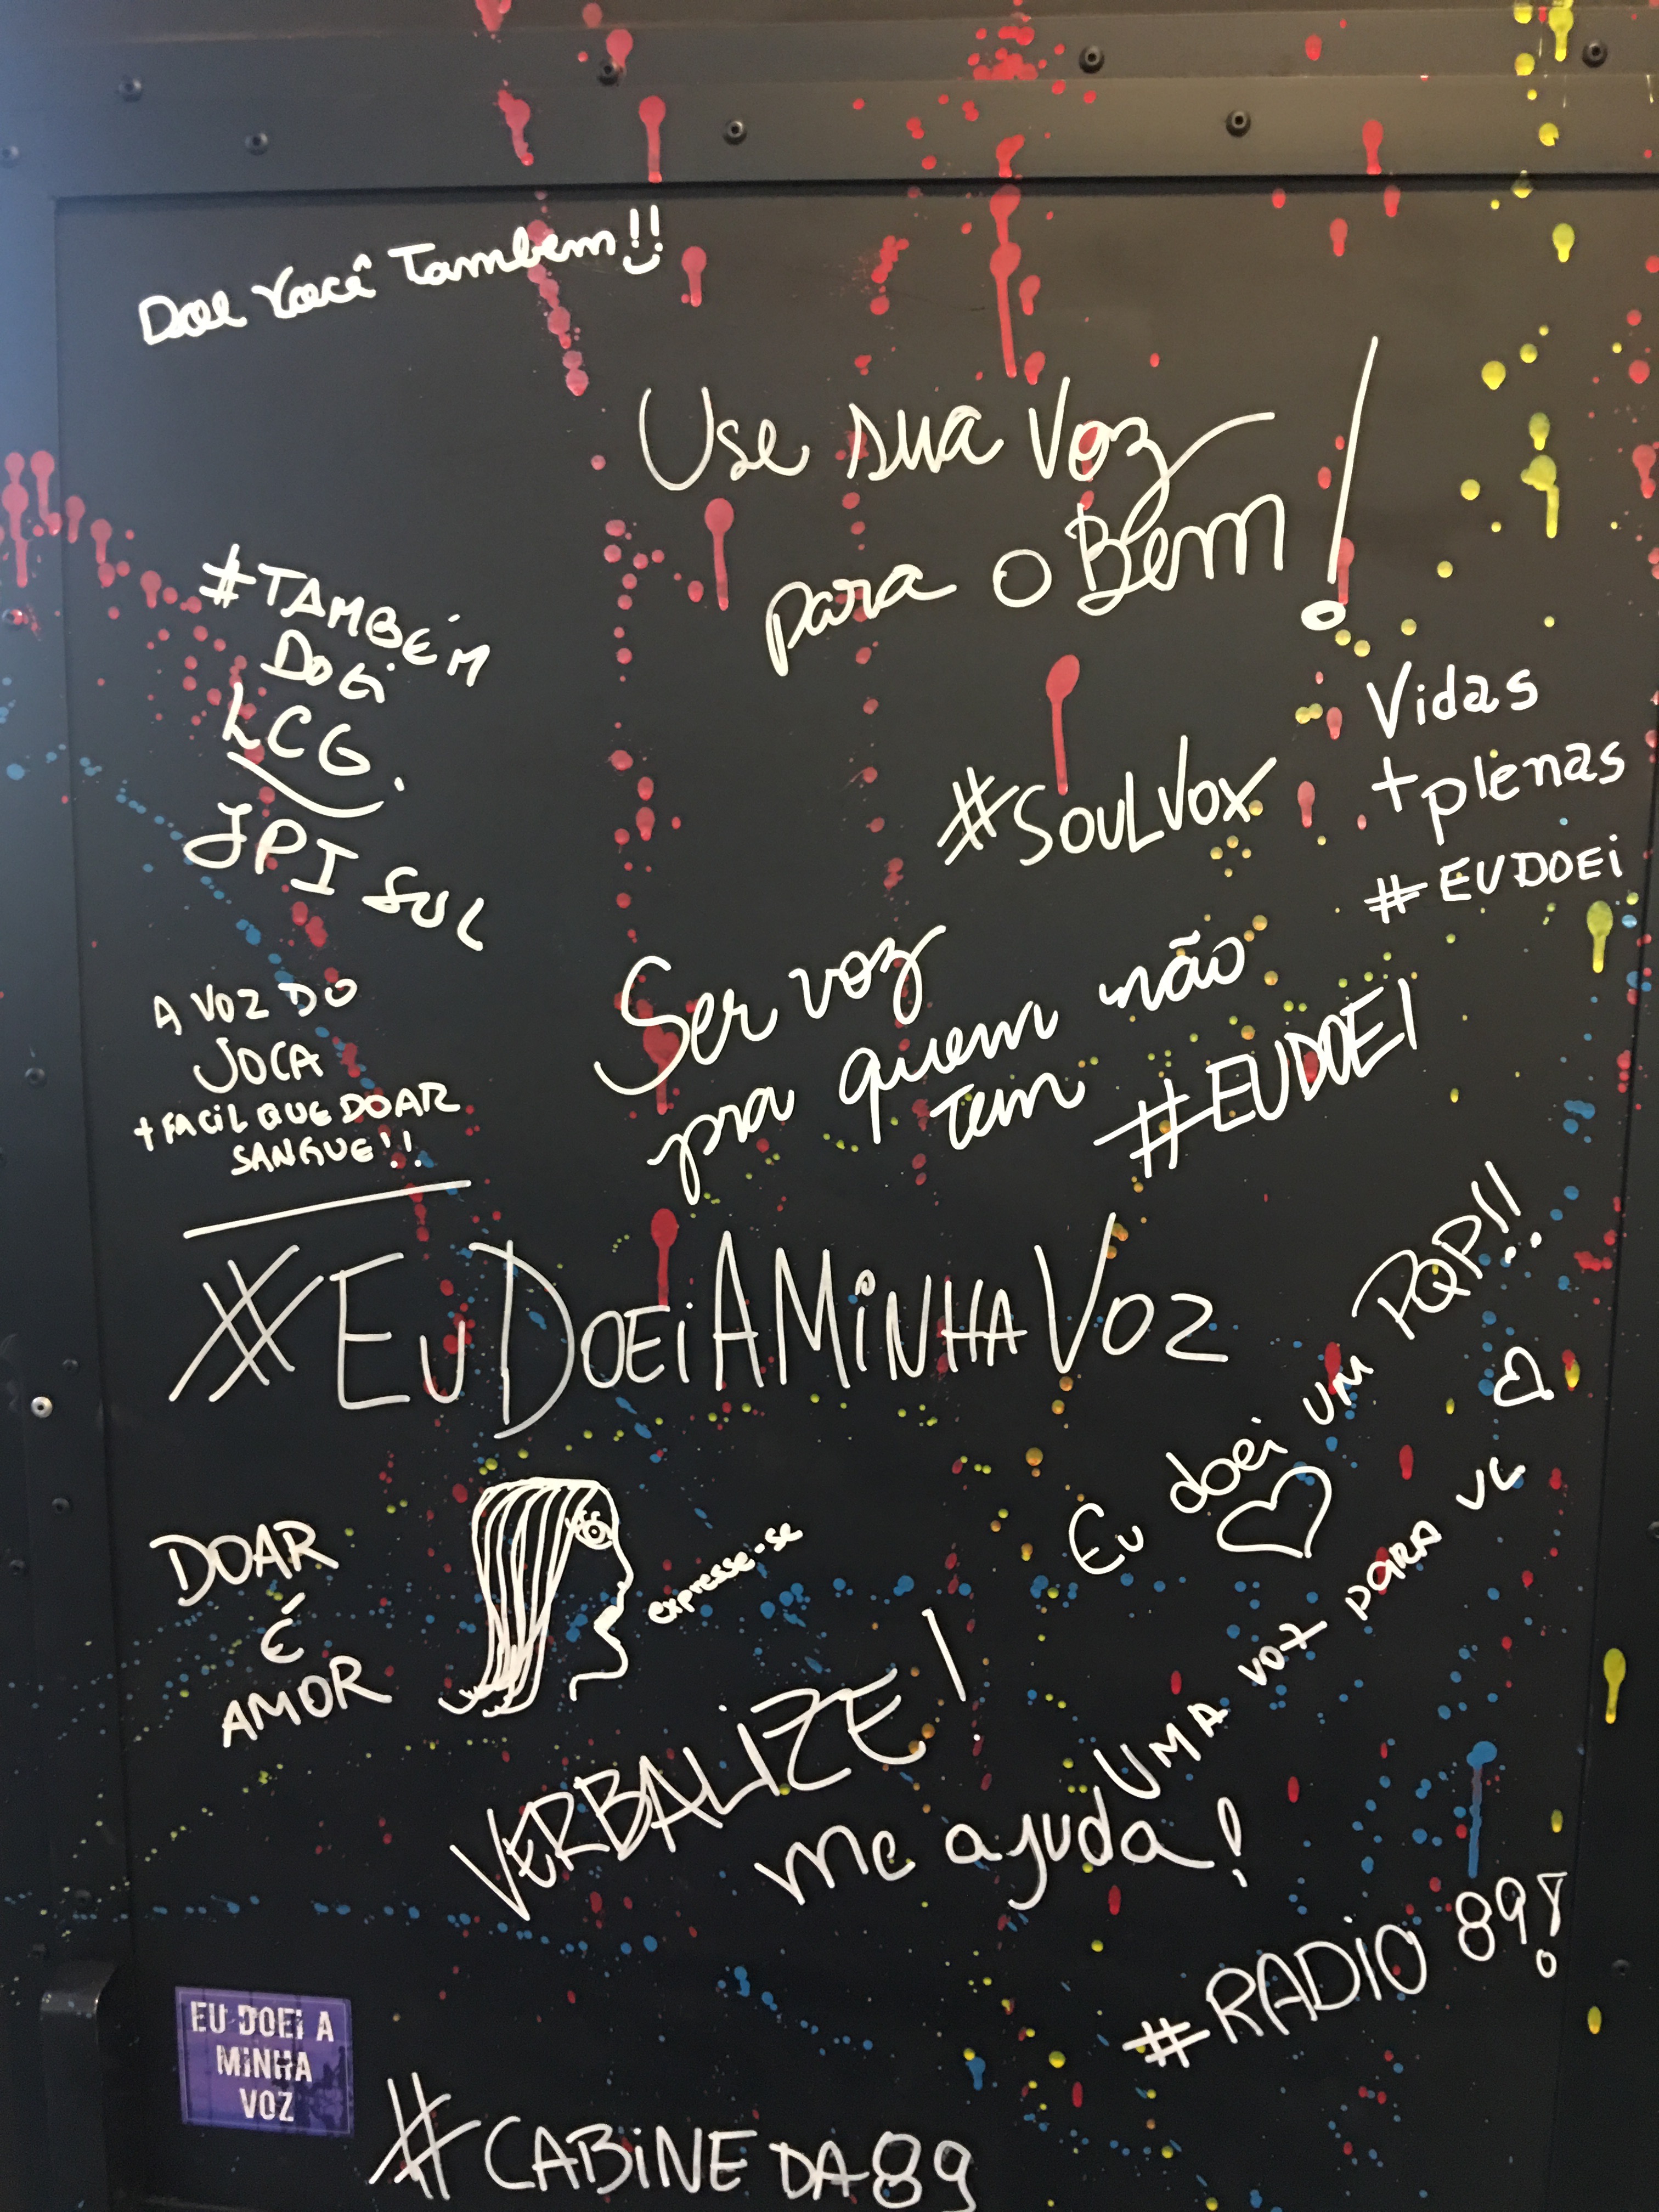 Doe você Tambem!!
Use sua Voz
para o Bem!
#TAMBÉM
DOEi
LCG.
JPI SUL
Vidas
+ plenas
#EUDOEi
#SOULVOX
A VOZ DO
JOCA
+ FACiL QUE DOAR
SANGUE!!
Ser voz
pra quem não
tem
#EUDOEI
#EUDOEiAMiNHAVOZ
Eu doei um PQP!!
DOAR
É
AMOR
expresse-se
UMA voz para vc
VERBALiZE!
me ajuda!
#RADiO 89!
EU DOEi A
MiNHA
VOZ
#CABiNE DA 89